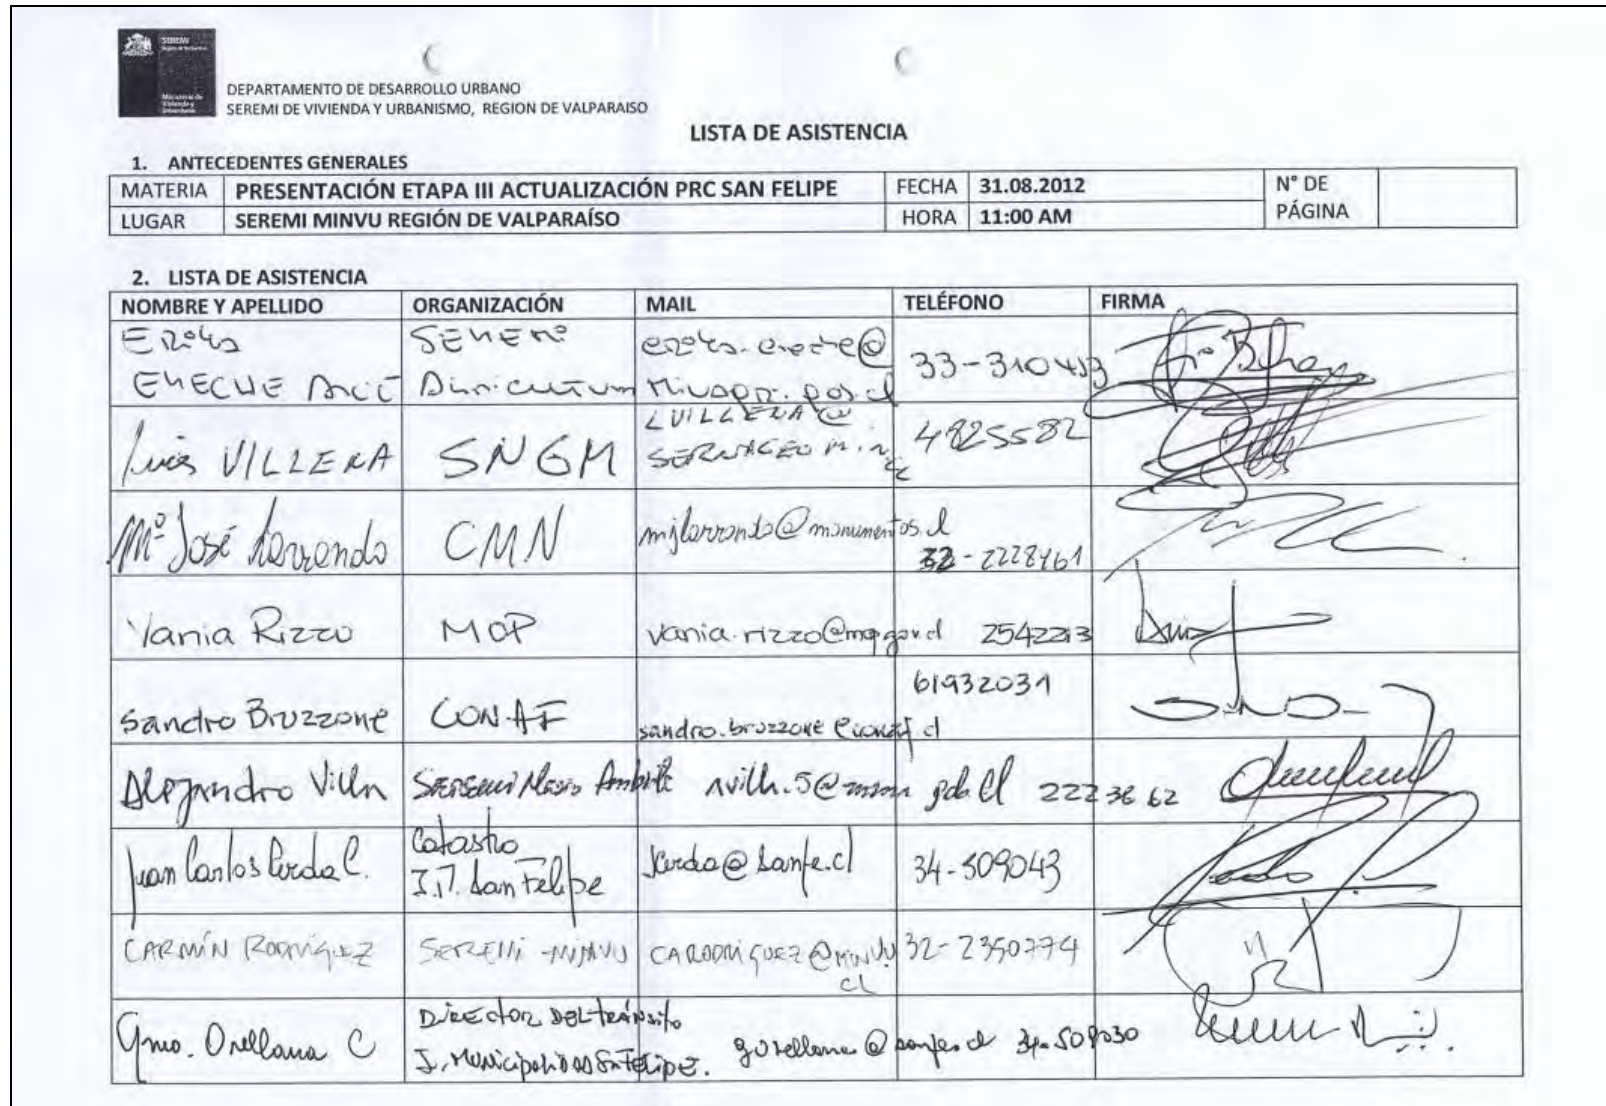 SEREMI
Ministerio de
Vivienda y
Urbanismo
DEPARTAMENTO DE DESARROLLO URBANO
SEREMI DE VIVIENDA Y URBANISMO, REGION DE VALPARAISO
LISTA DE ASISTENCIA
1. ANTECEDENTES GENERALES
MATERIA PRESENTACIÓN ETAPA III ACTUALIZACIÓN PRC SAN FELIPE FECHA 31.08.2012 N° DE PÁGINA
LUGAR SEREMI MINVU REGIÓN DE VALPARAÍSO HORA 11:00 AM
2. LISTA DE ASISTENCIA
NOMBRE Y APELLIDO ORGANIZACIÓN MAIL TELÉFONO FIRMA
33-310413
Luis VILLENA SNGM LVILLENA@ 4825582
Mª José Larrondo CMN mjlarrondo@monumentos.cl 32-2228461
Vania Rizzo MOP vania.rizzo@mop.gov.cl 2542213
Sandro Bruzzone CONAF sandro.bruzzone@conaf.cl 61932031
Alejandro Villa Seremi Medio Ambiente 2223662
Juan Carlos Cerda C. Catastro I.M. San Felipe jcerda@sanfe.cl 34-509043
CARMÍN RODRÍGUEZ SEREMI-MINVU CARODRIGUEZ@MINVU.CL 32-2350774
Gmo. Orellana C DIRECTOR DEL tránsito
I. Municipalidad Sn Felipe. gorellana@sanfe.cl 34-509030